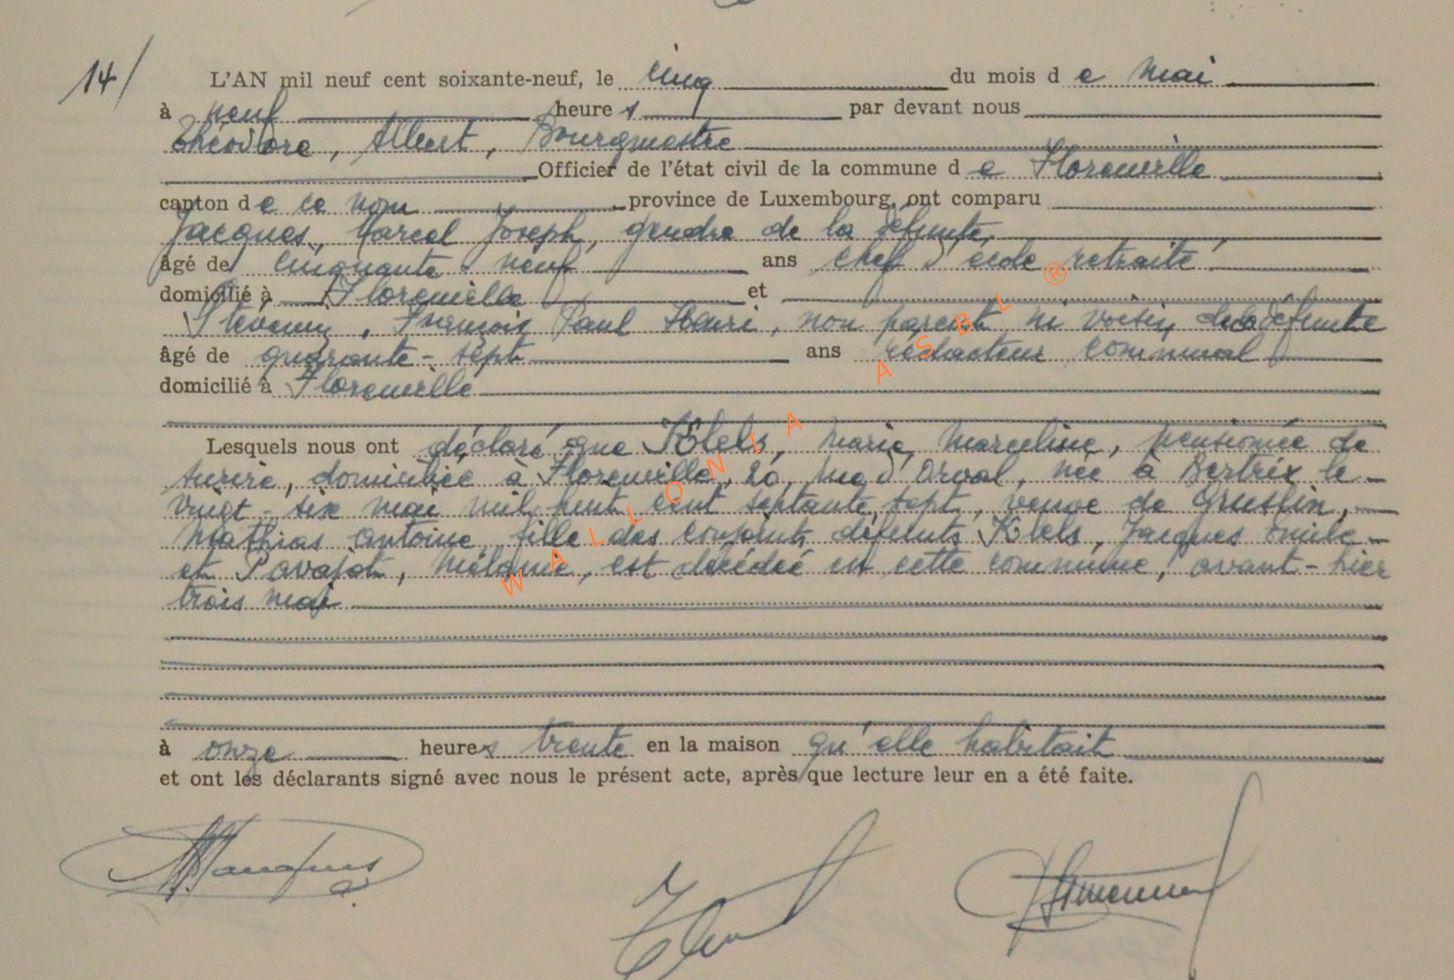 14/
L'AN mil neuf cent soixante-neuf, le cinq du mois de mai
à neuf heures par devant nous
Théodore, Albert, Bourgmestre
Officier de l'état civil de la commune de Florenville
canton de ce nom province de Luxembourg, ont comparu
Jacques, Marcel Joseph, gendre de la défunte,
âgé de cinquante neuf ans chef d'école retraité
domicilié à Florenville et
François Paul Henri, non parent ni voisin de la défunte
âgé de quarante-sept ans rédacteur communal
domicilié à Florenville
Lesquels nous ont déclaré que Marie, Marceline, pensionnée de
survie, domiciliée à Florenville, 20, rue d'Orval, née à Bertrix le
vingt-six mai mil huit cent septante sept, veuve de
Mathias Antoine, fille des conjoints défunts Jacques Emile
et Mélanie, est décédée en cette commune, avant-hier
trois mai
à onze heures trente en la maison qu'elle habitait
et ont les déclarants signé avec nous le présent acte, après que lecture leur en a été faite.
WALLONIA ASBL ®